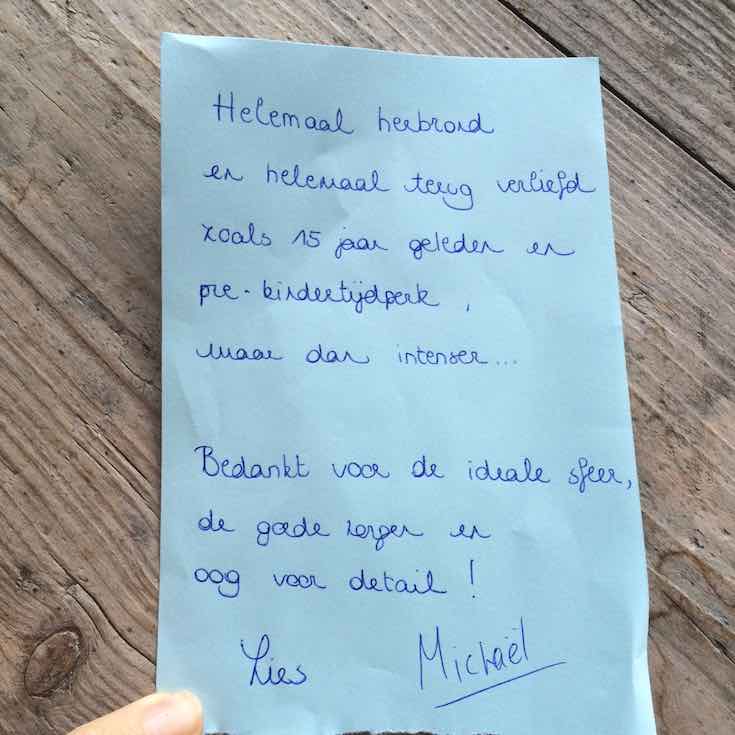 Helemaal herbrond
en helemaal terug verliefd
zoals 15 jaar geleden en
pre-kindertijdperk,
maar dan intenser...
Bedankt voor de ideale sfeer,
de goede zorgen en
oog voor detail!
Lies Michaël